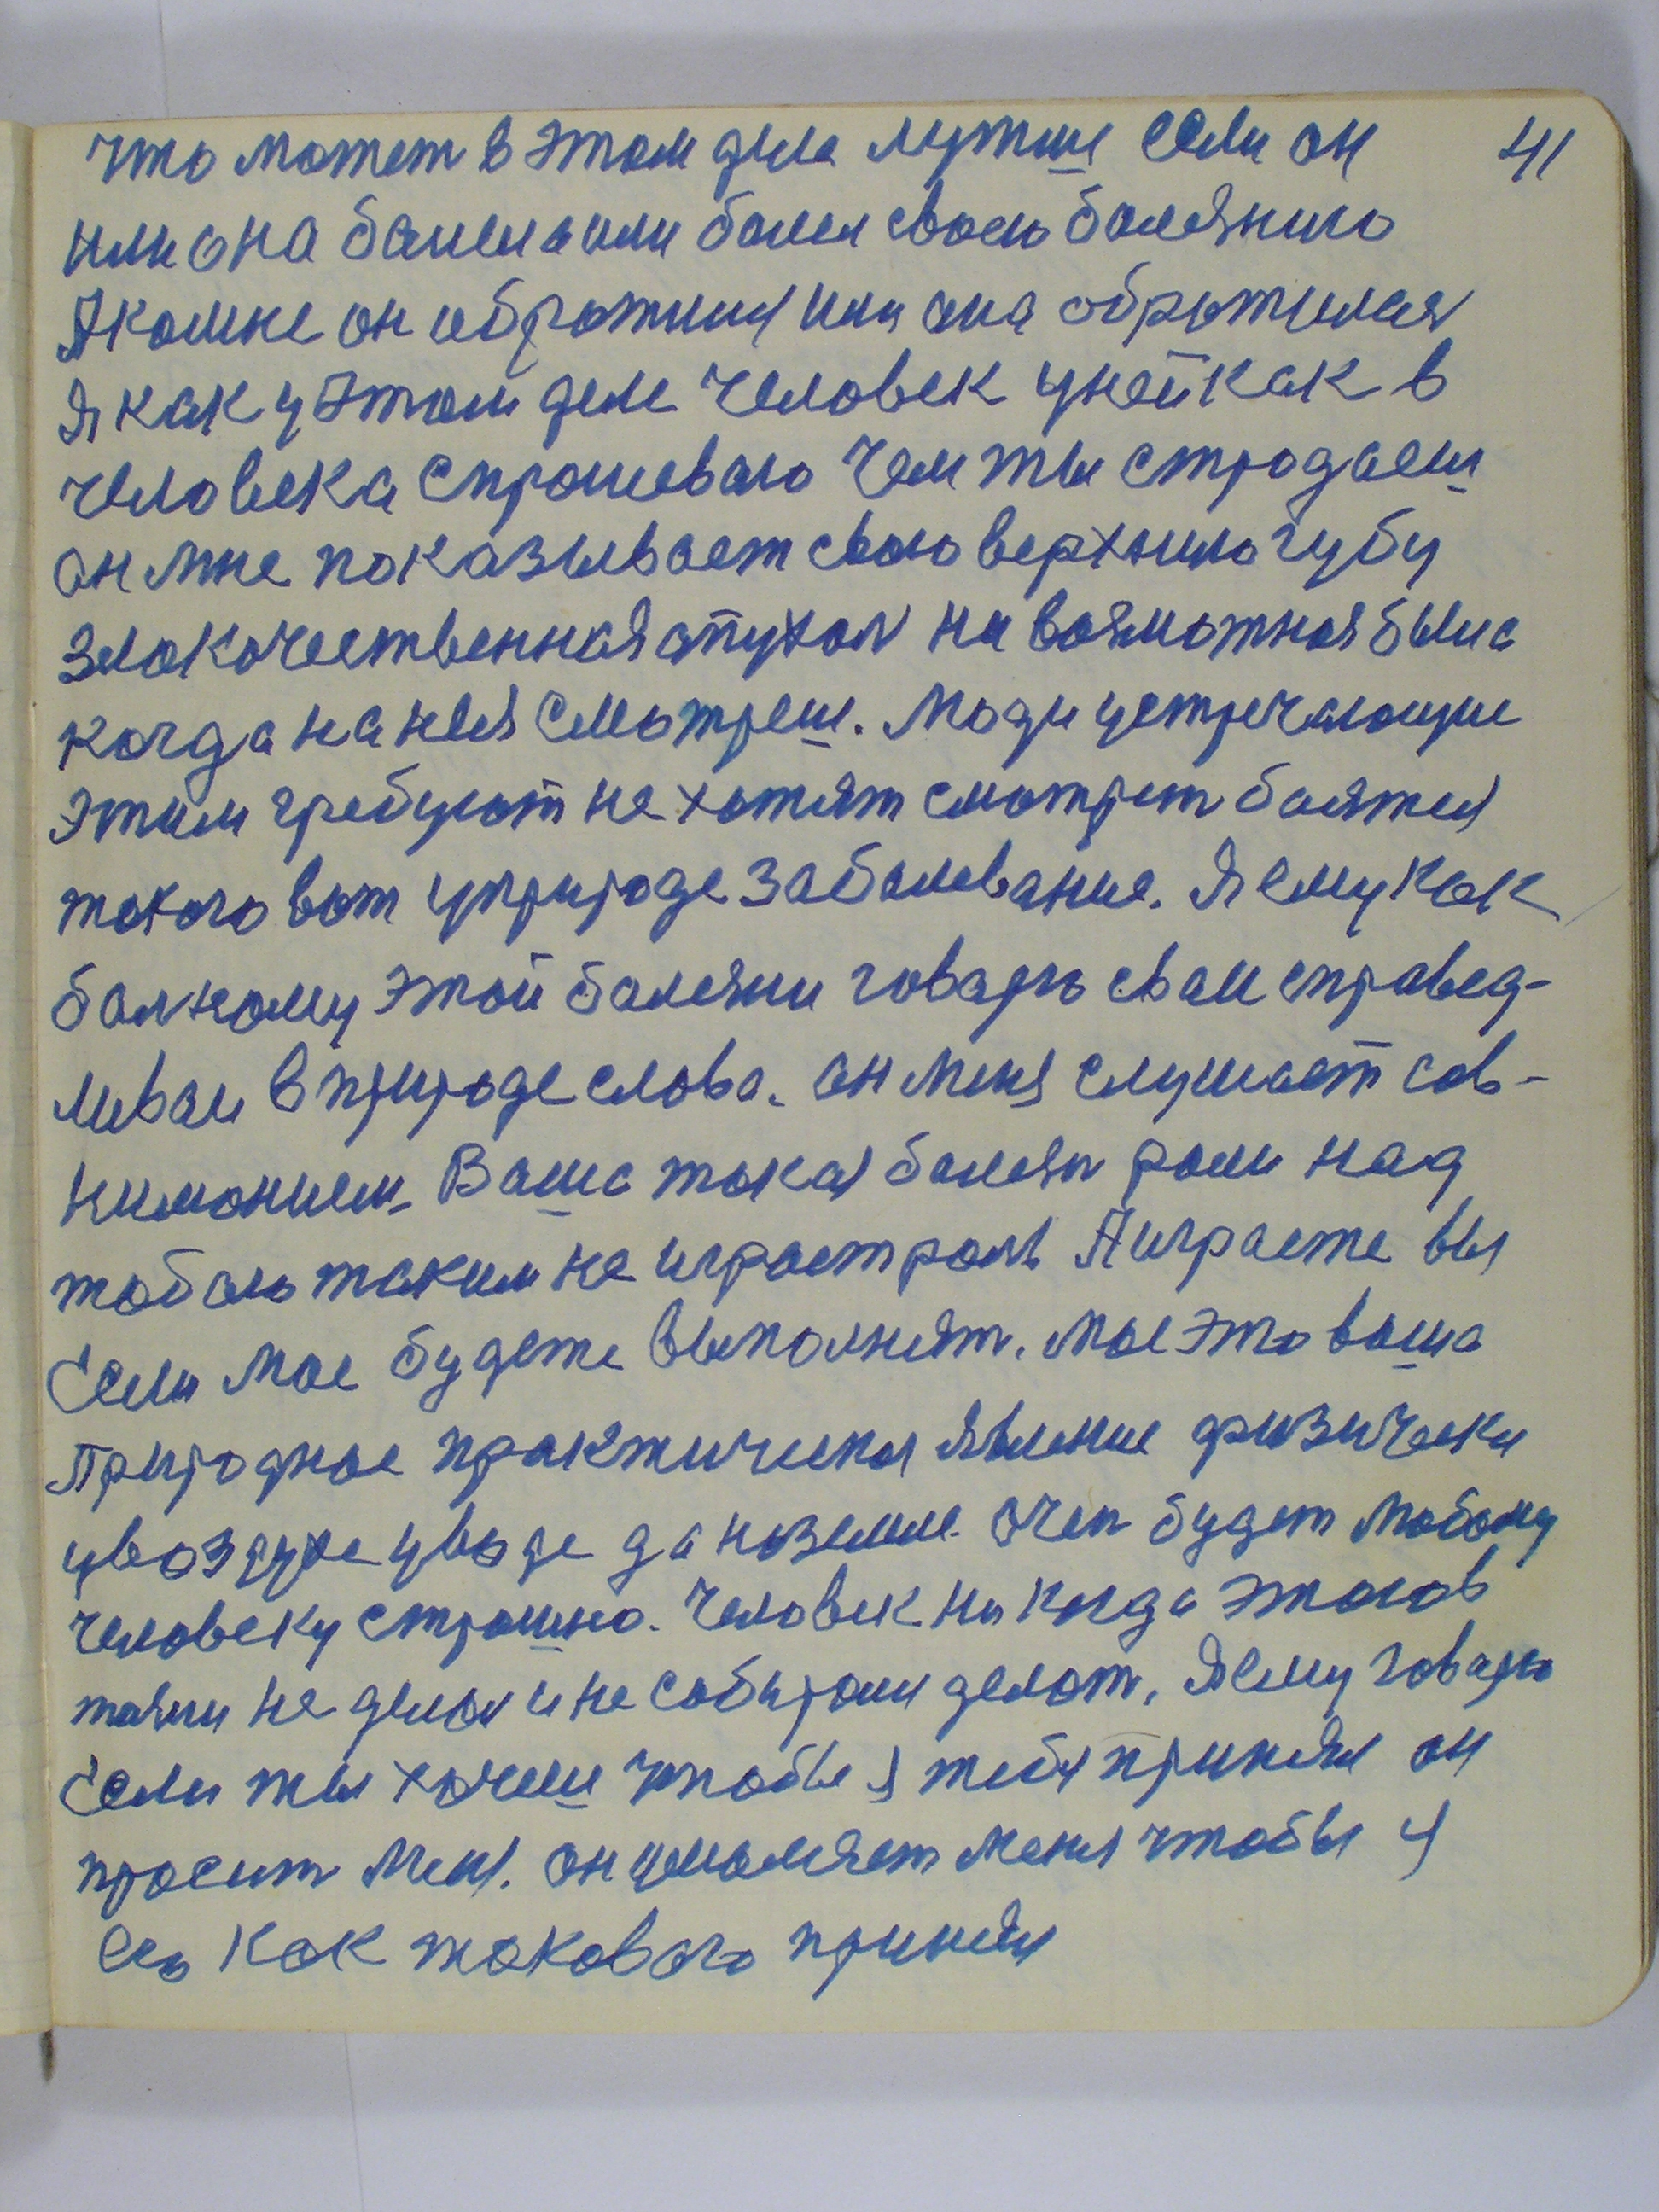 что может в этом деле лутши если он 41
или она балела или балел своею балезнию
Я комне он обратился или она обратилася
Я как у этом деле человек унего как в
человека спрошеваю чем ты стродаеш
он мне показывает свою верхнию губу
злокочественная опухол не возможноя была
когда на нея смотреш. Люди устречающие
этим гребуют не хотят смотрет боятся
токого вот уприроде заболевание. Я ему как
болному этой балезни говарю свои справед-
ливои в природе слова. он меня слушает сов-
ниманием. Ваша такая болезн роли над
тобою таким не играет роль А играете вы
если мое будете выполнят. мое это ваша
Природное практическое явление физически
увоздухе уводе да на земле. очен будет любому
человеку страшно. Человек ни когда этогов
жизни не делал и не собирался делат. Я ему говарю
если ты хочеш чтобы я тебя принял он
просит меня. он умоляет меня чтобы я
его как такового принял